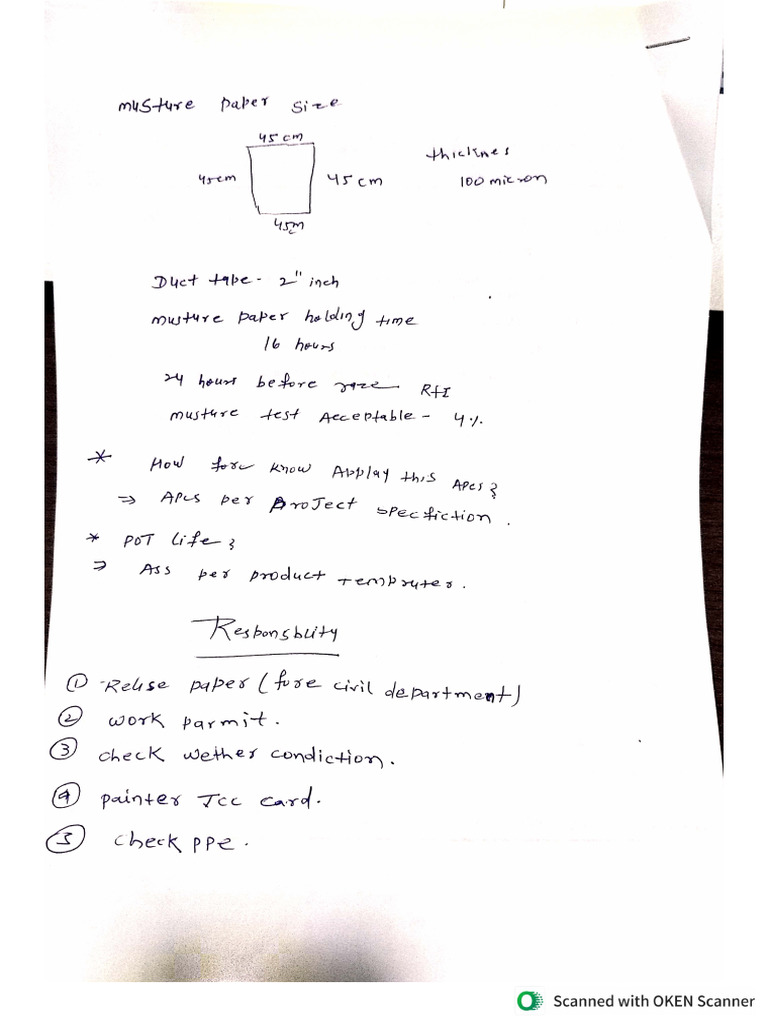 musture paper size
45 cm
45cm
45 cm
45cm
thicknes
100 micron
Duct tape - 2" inch
musture paper holding time
16 hours
24 hours before RFI
musture test Acceptable - 4%
* How fore know Applay this APCS
⇒ APCS per ProJect specfiction.
* POT Life
⇒ Ass per product
Responsbuity
① Relise paper (fore civil department)
② work parmit.
③ check wether condiction.
④ painter Jcc card.
⑤ check ppe.
Scanned with OKEN Scanner